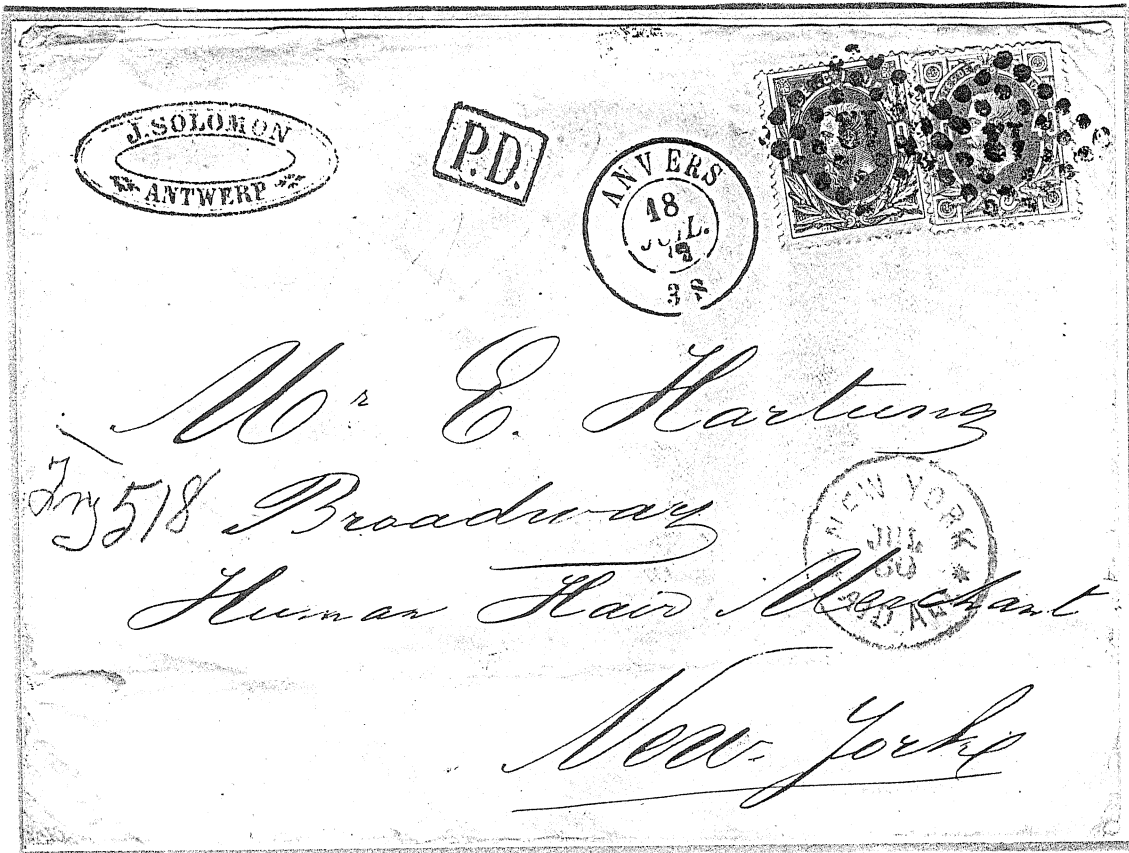 J. SOLOMON
ANTWERP
P.D.
ANVERS
18
JUIL.
3 S
Mr E. Hartung
518 Broadway
Human Hair Merchant
New-Yorke
NEW YORK
JUL
30
PAID ALL